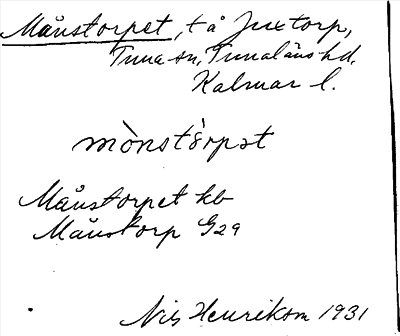 Månstorpet, t å Juxtorp,
Tuna sn, Tunaläns hd.
Kalmar l.
mònstòrpət
Månstorpet kb
Månstorp G29
Nils Henrikson 1931